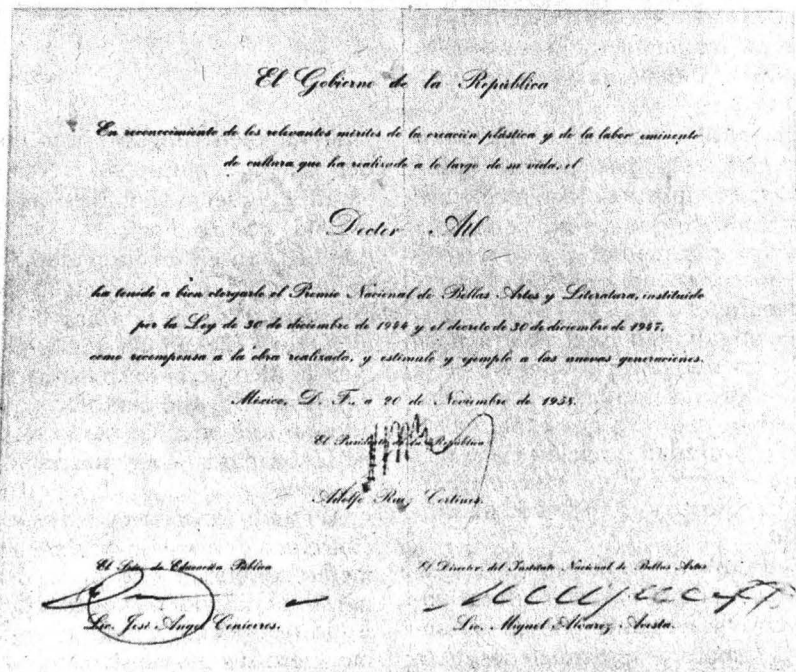 El Gobierno de la República
En reconocimiento de los relevantes méritos de la creación plástica y de la labor eminente
de cultura que ha realizado a lo largo de su vida, el
Doctor Atl
ha tenido a bien otorgarle el Premio Nacional de Bellas Artes y Literatura, instituido
por la Ley de 30 de diciembre de 1944 y el decreto de 30 de diciembre de 1947,
como recompensa a la obra realizada, y estímulo y ejemplo a las nuevas generaciones.
México, D. F., a 20 de Noviembre de 1958.
El Presidente de la República
Adolfo Ruiz Cortines.
El Srio. de Educación Pública
El Director del Instituto Nacional de Bellas Artes
Lic. José Angel Ceniceros.
Lic. Miguel Alvarez Acosta.